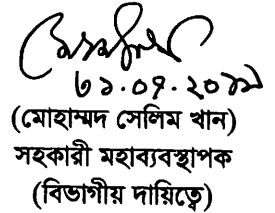 ৩১.০৭.২০১৯
(মোহাম্মদ সেলিম খান)
সহকারী মহাব্যবস্থাপক
(বিভাগীয় দায়িত্বে)